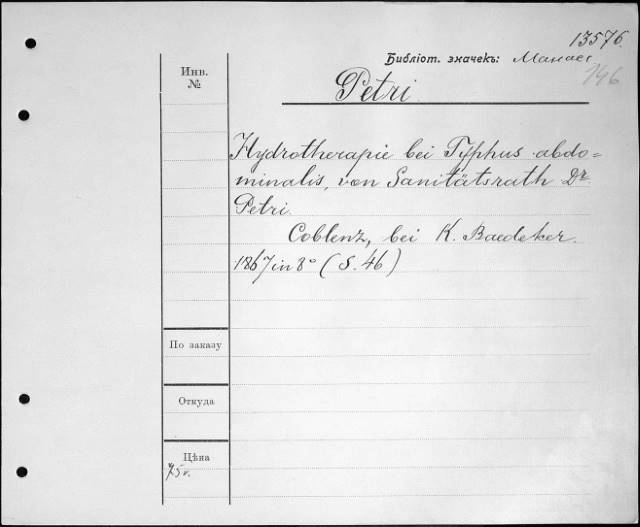 13576.
Библіот. значекъ:
146
Инв.
№
Petri
Hydrotherapie bei Typhus abdo=
minalis, von Sanitätsrath Dr
Petri.
Coblenz, bei K. Baedeker.
1867 in 8° (S. 46)
По заказу
Откуда
Цѣна
75